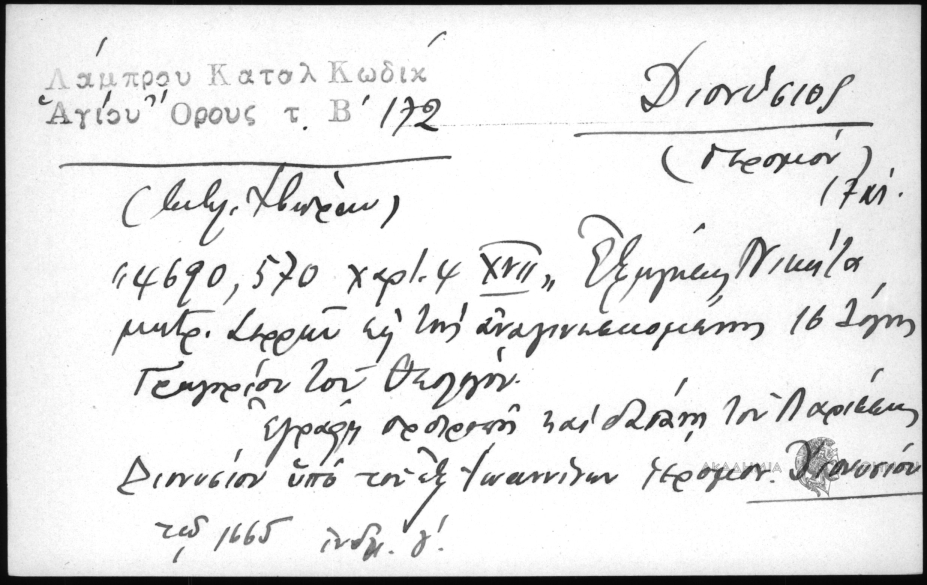 Λάμπρου Καταλ Κωδικ
Ἁγίου Ὄρους τ. Β' 172
Διονύσιος
(ἱερομον)
17 αἰ.
(βιβλ. Ἰβήρων)
"4690, 570 χαρτ. 4 XVII" Ἐξήγησις Νικήτα
μητρ. Σερρῶν εἰς τοὺς ἀναγινωσκομένους 16 λόγους
Γρηγορίου τοῦ Θεολόγου.
Ἐγράφη προτροπῇ καὶ δαπάνῃ τοῦ Λαρίσσης
Διονυσίου ὑπὸ τοῦ ἐξ Ἰωαννίνων ἱερομον. Διονυσίου
τῷ 1665 ἰνδικ. γ'.
ΑΚΑΔΗΜΙΑ